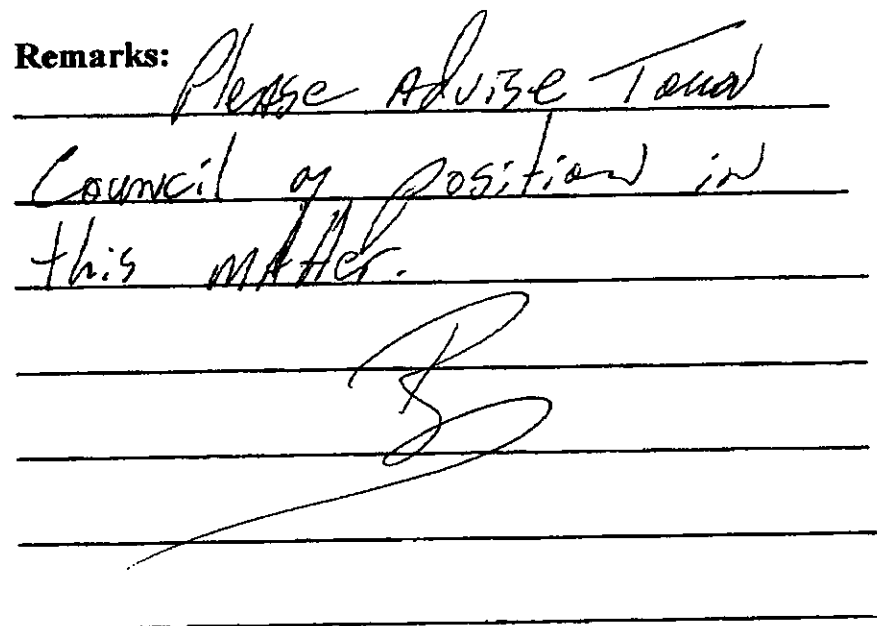 Remarks:
Please Advise Town
Council of position in
this matter.